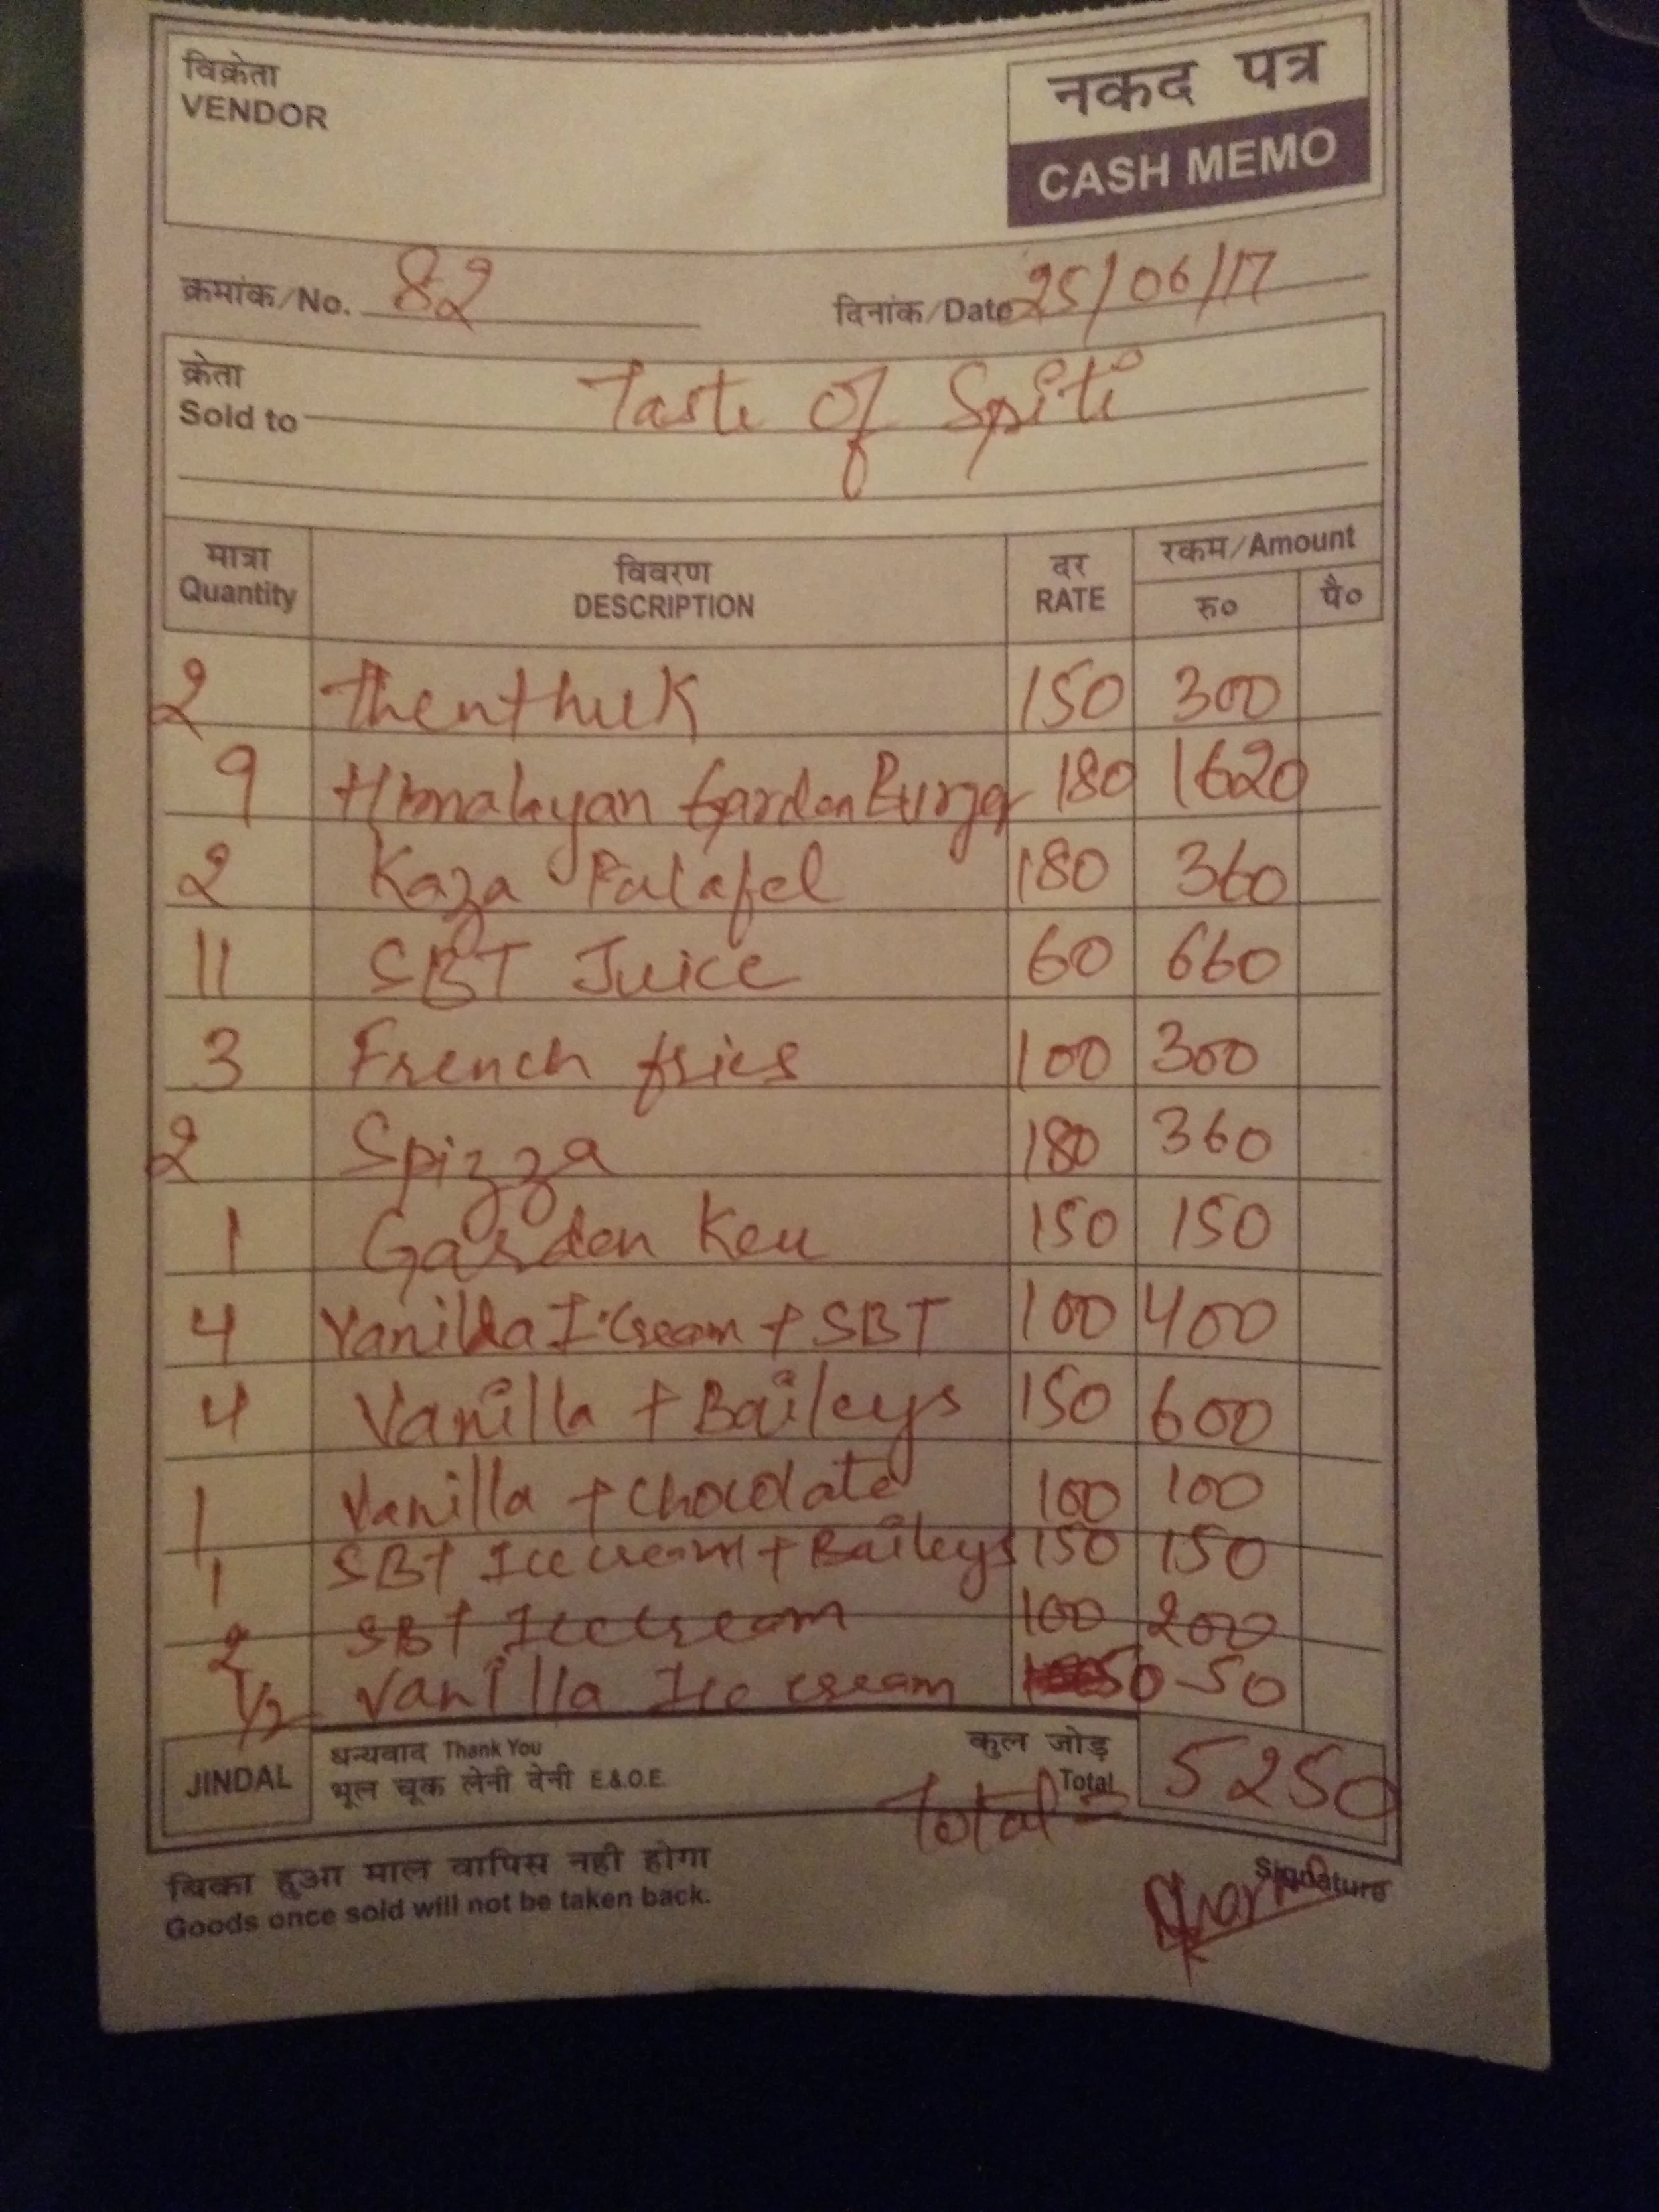 विक्रेता
VENDOR
नकद पत्र
CASH MEMO
क्रमांक/No. 82
दिनांक/Date 25/06/17
क्रेता
Sold to Taste of Spiti
मात्रा Quantity विवरण DESCRIPTION दर RATE रकम/Amount रु० पै०
2 Thenthuk 150 300
9 Himalayan Garden Burger 180 1620
2 Kaza Falafel 180 360
11 SBT Juice 60 660
3 French fries 100 300
2 Spizza 180 360
1 Garden Keu 150 150
4 Vanilla I.Cream + SBT 100 400
4 Vanilla + Baileys 150 600
1 Vanilla + Chocolate 100 100
1 SBT Ice cream + Baileys 150 150
2 SBT Icecream 100 200
1/2 Vanilla Ice cream 50 50
JINDAL
धन्यवाद Thank You
भूल चूक लेनी देनी E.&.O.E.
कुल जोड़
Total 5250
Total =
बिका हुआ माल वापिस नही होगा
Goods once sold will not be taken back.
Signature